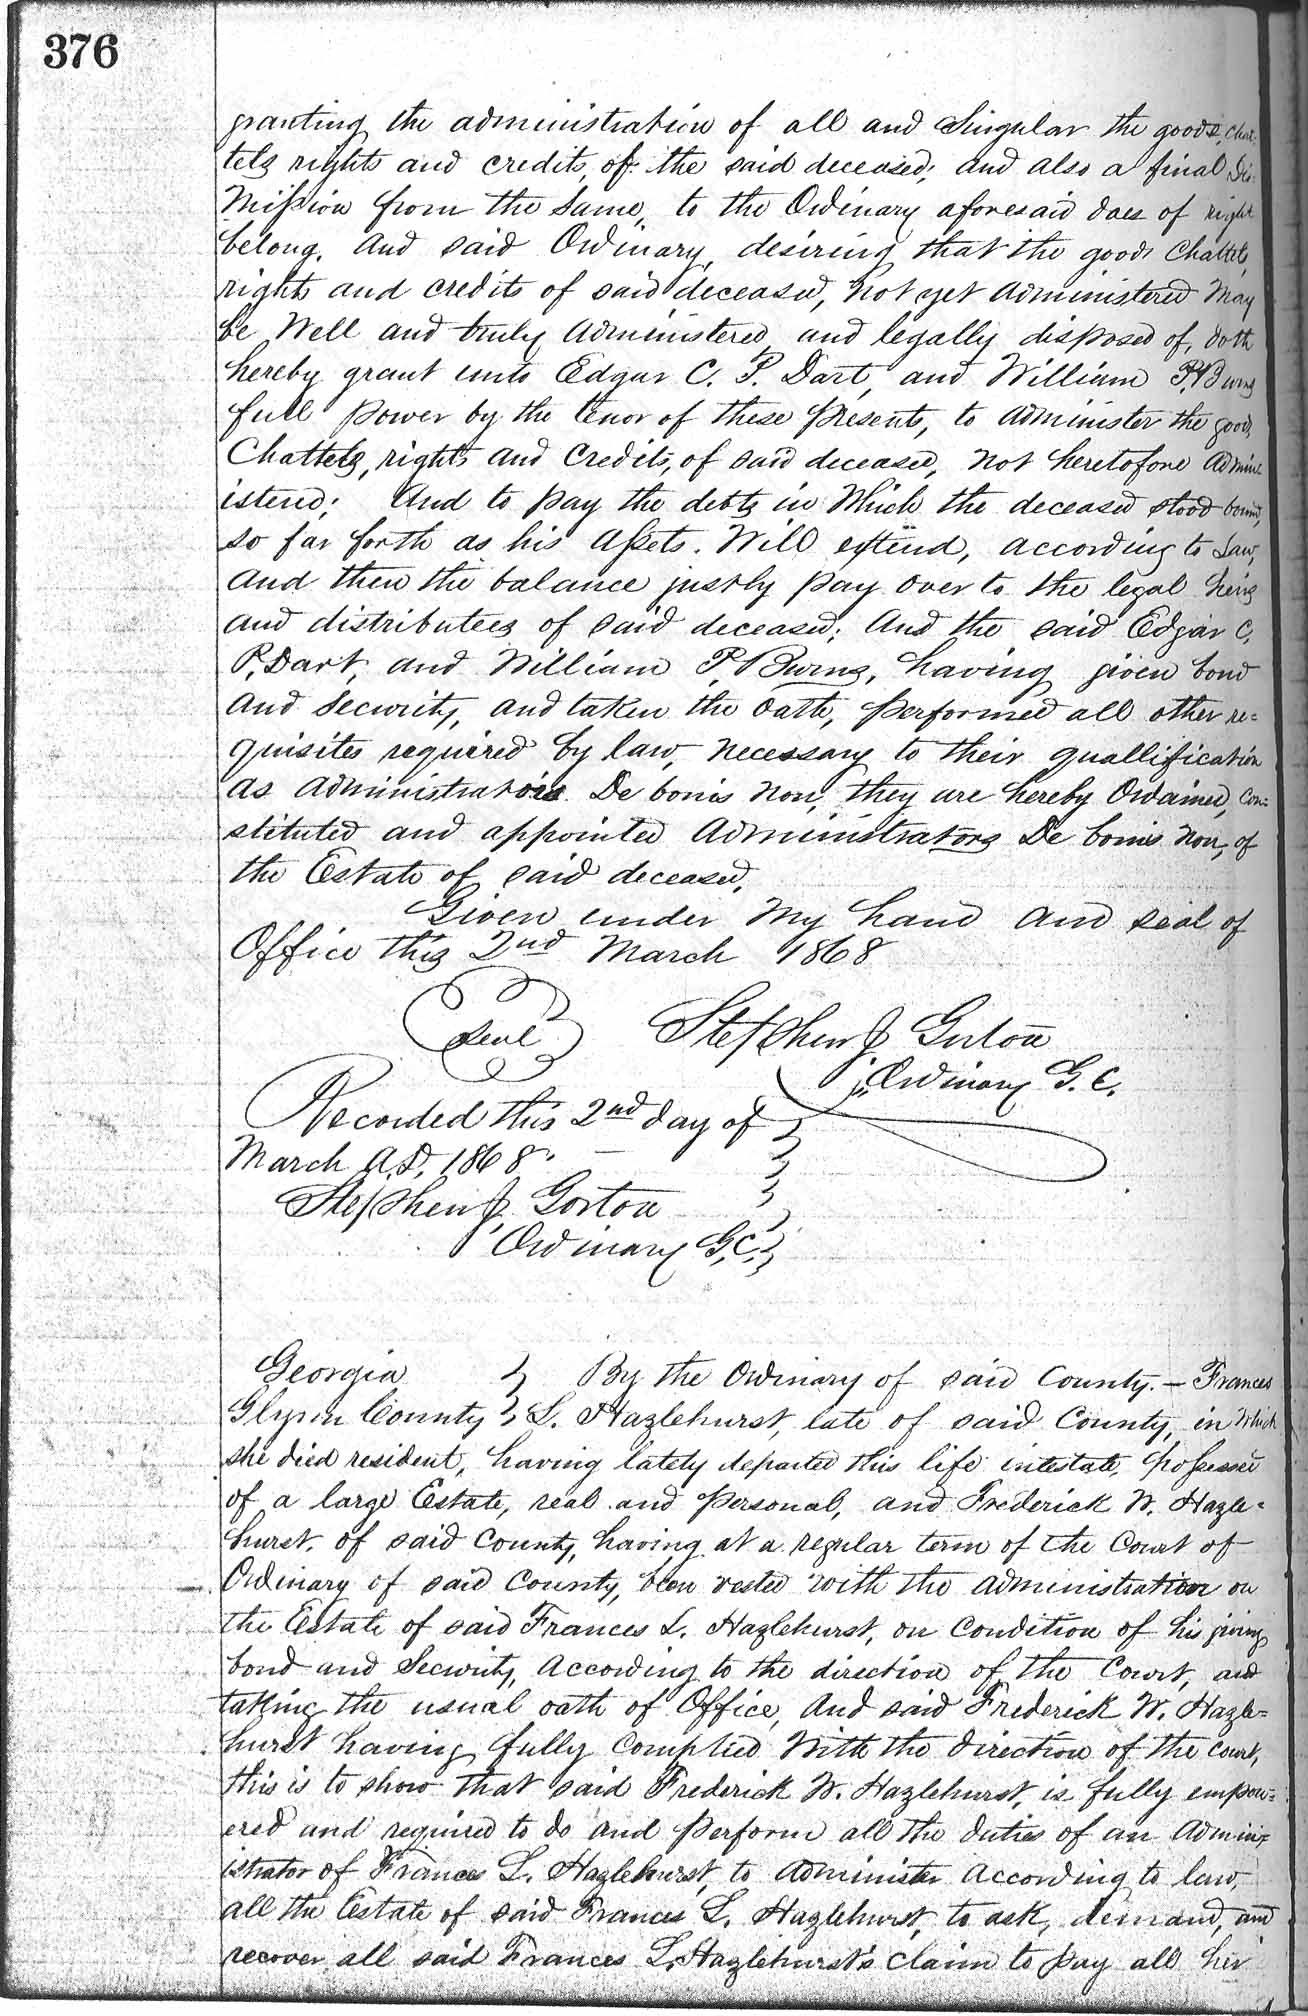 376
granting the administration of all and Singular the goods, chat-
tels rights and credits, of the said deceased; and also a final Dis-
mission from the same, to the Ordinary aforesaid does of right
belong. And said Ordinary, desiring that the goods Chattels,
rights and credits of said deceased, not yet administered may
be Well and truly administered, and legally disposed of, doth
hereby grant unto Edgar C. P. Dart, and William P. Burns
full power by the tenor of these presents, to administer the goods,
Chattels, rights and credits, of said deceased, not heretofore admin
istered; And to pay the debts in Which the deceased stood bound,
so far forth as his Assets. Will extend, according to Law,
And then the balance justly pay over to the legal heirs
and distributees of said deceased; And the said Edgar C.
P. Dart, and William P. Burns, having given bond
and security, and taken the oath, performed all other re=
quisites required by law, necessary to their quallification
as administrators De bonis non, they are hereby Ordained, con=
stituted and appointed Administrators De bonis non, of
the Estate of said deceased.
Given under my hand and seal of
Office this 2nd March 1868
Seal Stephen J. Gorton
Ordinary G. C.
Recorded this 2nd day of
March A.D. 1868.
Stephen J. Gorton
Ordinary G.C.
Georgia } By the Ordinary of said County. – Frances
Glynn County } L. Hazlehurst, late of said County, in which
she died resident, having lately departed this life intestate, possessed
of a large Estate, real and personal, and Frederick W. Hazle=
hurst. of said County, having at a regular term of the Court of
Ordinary of said County, been vested with the administration on
the Estate of said Frances L. Hazlehurst, on Condition of his giving
bond and Security, According to the direction of the Court, and
taking the usual oath of Office, And said Frederick W. Hazle=
hurst having fully complied With the direction of the court,
this is to show that said Frederick W. Hazlehurst, is fully empow=
ered and required to do and perform all the duties of an Admin=
istrator of Frances L. Hazlehurst, to administer according to law,
all the Estate of said Frances L. Hazlehurst, to ask, demand, and
recover all said Frances L. Hazlehurst's claim to pay all her